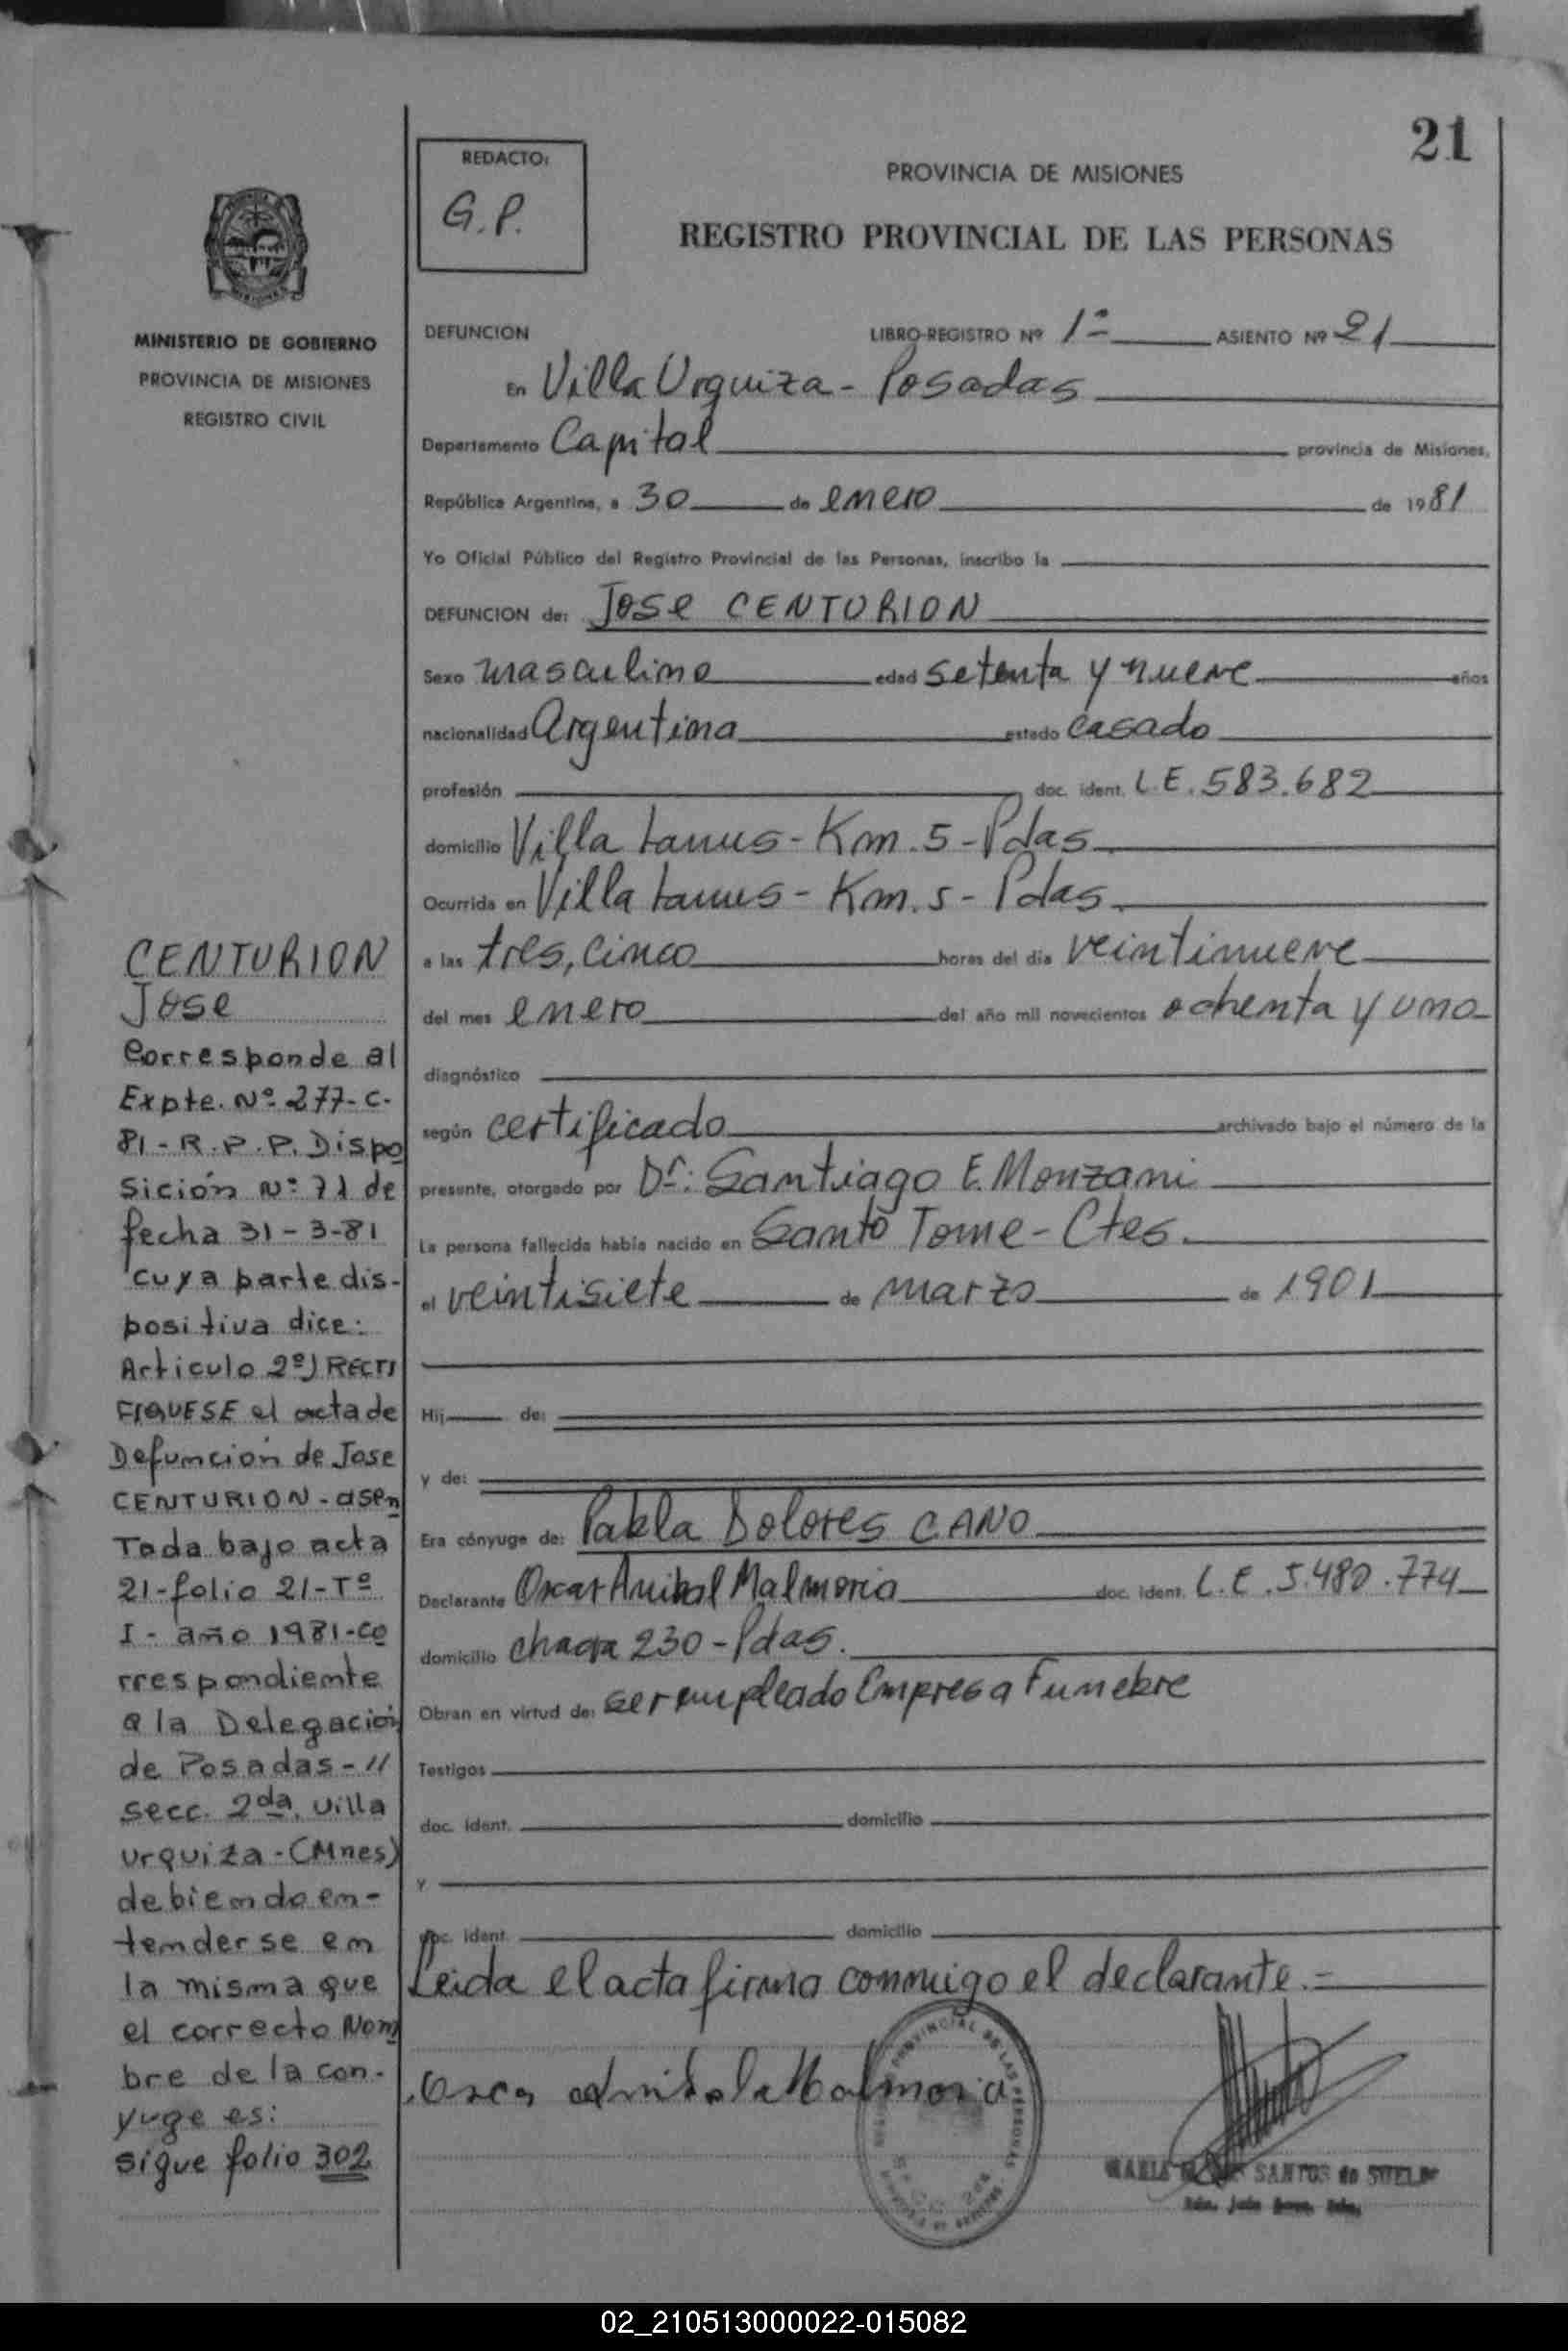 21
REDACTO:
G.P.
PROVINCIA DE MISIONES
REGISTRO PROVINCIAL DE LAS PERSONAS
MINISTERIO DE GOBIERNO
PROVINCIA DE MISIONES
REGISTRO CIVIL
DEFUNCION LIBRO-REGISTRO Nº 1º ASIENTO Nº 21
En Villa Urquiza - Posadas
Departamento Capital provincia de Misiones,
República Argentina, a 30 de enero de 1981
Yo Oficial Público del Registro Provincial de las Personas, inscribo la
DEFUNCION de: Jose CENTURION
Sexo masculino edad setenta y nueve años
nacionalidad Argentina estado casado
profesión doc. ident. L.E. 583.682
domicilio Villa Lanus - Km. 5 - Pdas.
Ocurrida en Villa Lanus - Km. 5 - Pdas.
a las tres, cinco horas del día veintinueve
del mes enero del año mil novecientos ochenta y uno
diagnóstico
según certificado archivado bajo el número de la
presente, otorgado por Dr: Santiago E. Monzani
La persona fallecida había nacido en Santo Tome - Ctes.
el veintisiete de marzo de 1901
Hij de:
y de:
Era cónyuge de: Pabla Dolores CANO
Declarante Oscar Anibal Malmoria doc. ident. L.E. 5.480.774
domicilio chacra 230 - Pdas.
Obran en virtud de: ser empleado Empresa Funebre
Testigos
doc. ident. domicilio
y
doc. ident. domicilio
Leida el acta firma conmigo el declarante.-
Oscar Anibal Malmoria
PROVINCIAL DE LAS PERSONAS
SANTOS de
CENTURION
Jose
Corresponde al
Expte. Nº 277-C-
81-R.P.P. Dispo
sición Nº 71 de
fecha 31-3-81
cuya parte dis-
positiva dice:
Articulo 2º) RECTI
FIQUESE el acta de
Defunción de Jose
CENTURION - asen
Tada bajo acta
21-folio 21-Tº
I - año 1981-co
rrespondiente
a la Delegación
de Posadas - "
secc. 2da. Villa
Urquiza - (Mnes)
debiendo en-
tenderse en
la misma que
el correcto Nom
bre de la con-
yuge es:
sigue folio 302
02_210513000022-015082